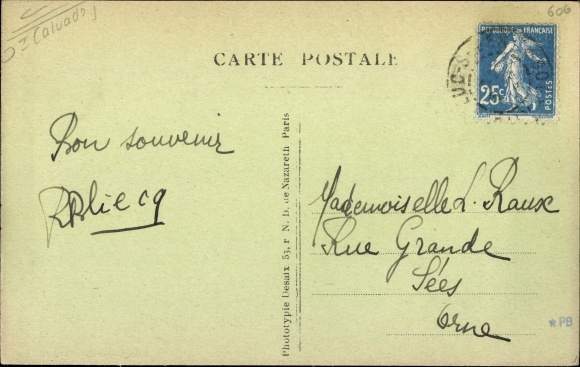 (Calvados)
606
CARTE POSTALE
REPUBLIQUE FRANÇAISE
25c
POSTES
Bon souvenir
Phototypie Desaix 53, r N. D. de Nazareth Paris
Mademoiselle L. Raux
Rue Grande
Sées
Orne
*PB